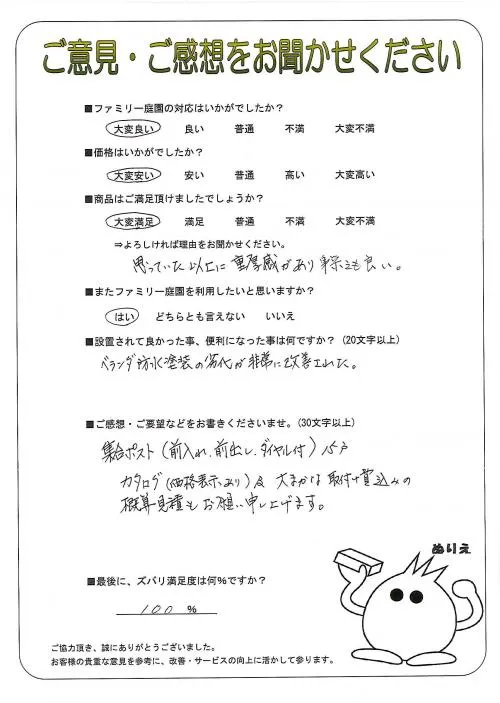 ご意見・ご感想をお聞かせください
■ファミリー庭園の対応はいかがでしたか？
大変良い 良い 普通 不満 大変不満
■価格はいかがでしたか？
大変安い 安い 普通 高い 大変高い
■商品はご満足頂けましたでしょうか？
大変満足 満足 普通 不満 大変不満
⇒よろしければ理由をお聞かせください。
思っていた以上に重厚感があり 見栄えも良い。
■またファミリー庭園を利用したいと思いますか？
はい どちらとも言えない いいえ
■設置されて良かった事、便利になった事は何ですか？（20文字以上）
ベランダ防水塗装の劣化が非常に改善された。
■ご感想・ご要望などをお書きくださいませ。（30文字以上）
集合ポスト（前入れ、前出し、ダイヤル付）15戸
カタログ（価格表示あり）及 大まかな取付け費込みの
概算見積もお願い申し上げます。
ぬりえ
■最後に、ズバリ満足度は何％ですか？
100 %
ご協力頂き、誠にありがとうございました。
お客様の貴重な意見を参考に、改善・サービスの向上に活かして参ります。